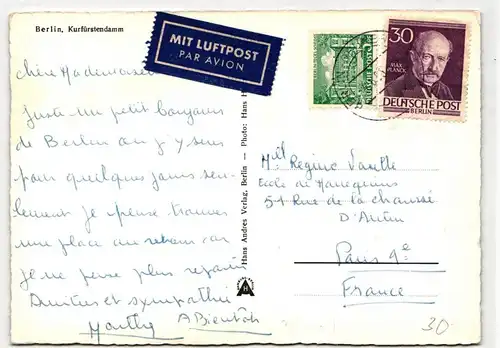 Berlin, Kurfürstendamm
MIT LUFTPOST
PAR AVION
Chère Mademoiselle
Juste un petit bonjour
de Berlin ou j'y suis
pour quelques jours seu-
lement je pense trouver
une place au retour car
je ne pense plus repartir
Amitiés et sympathie
A Bientôt
Hans Andres Verlag, Berlin - Photo: Hans
30
MAX
PLANCK
DEUTSCHE POST
BERLIN
DEUTSCHE POST
Mlle Regine
Ecole de Mannequins
51 Rue de la chaussé
D'Antin
Paris 9e
France
30